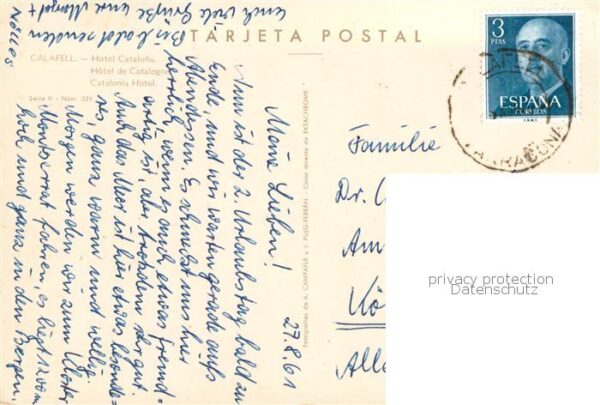 TARJETA POSTAL
CALAFELL. — Hotel Cataluña.
Hôtel de Catalogne.
Catalonia Hotel.
Serie II - Núm. 325
Fotografías de A. CAMPAÑÁ y J. PUIG-FERRÁN - Color directo de EKTACHROME
3
PTAS
ESPAÑA
CORREOS
27.8.61
Meine Lieben!
Nun ist der 2. Urlaubstag bald zu
Ende, und wir warten gerade aufs
Abendessen. Es schmeckt uns hier
herrlich, wenn es auch etwas fremd-
artig ist aber trotzdem sehr gut.
Auch das Meer ist hier etwas besonde-
res, ganz warm und wellig.
Morgen werden wir zum Kloster
Montserrat fahren, es liegt 1200m
hoch und ganz in den Bergen.
Bis bald senden
euch viele Grüße eure Margot +
Familie
Dr.
Am
Kö
Alle
privacy protection
Datenschutz